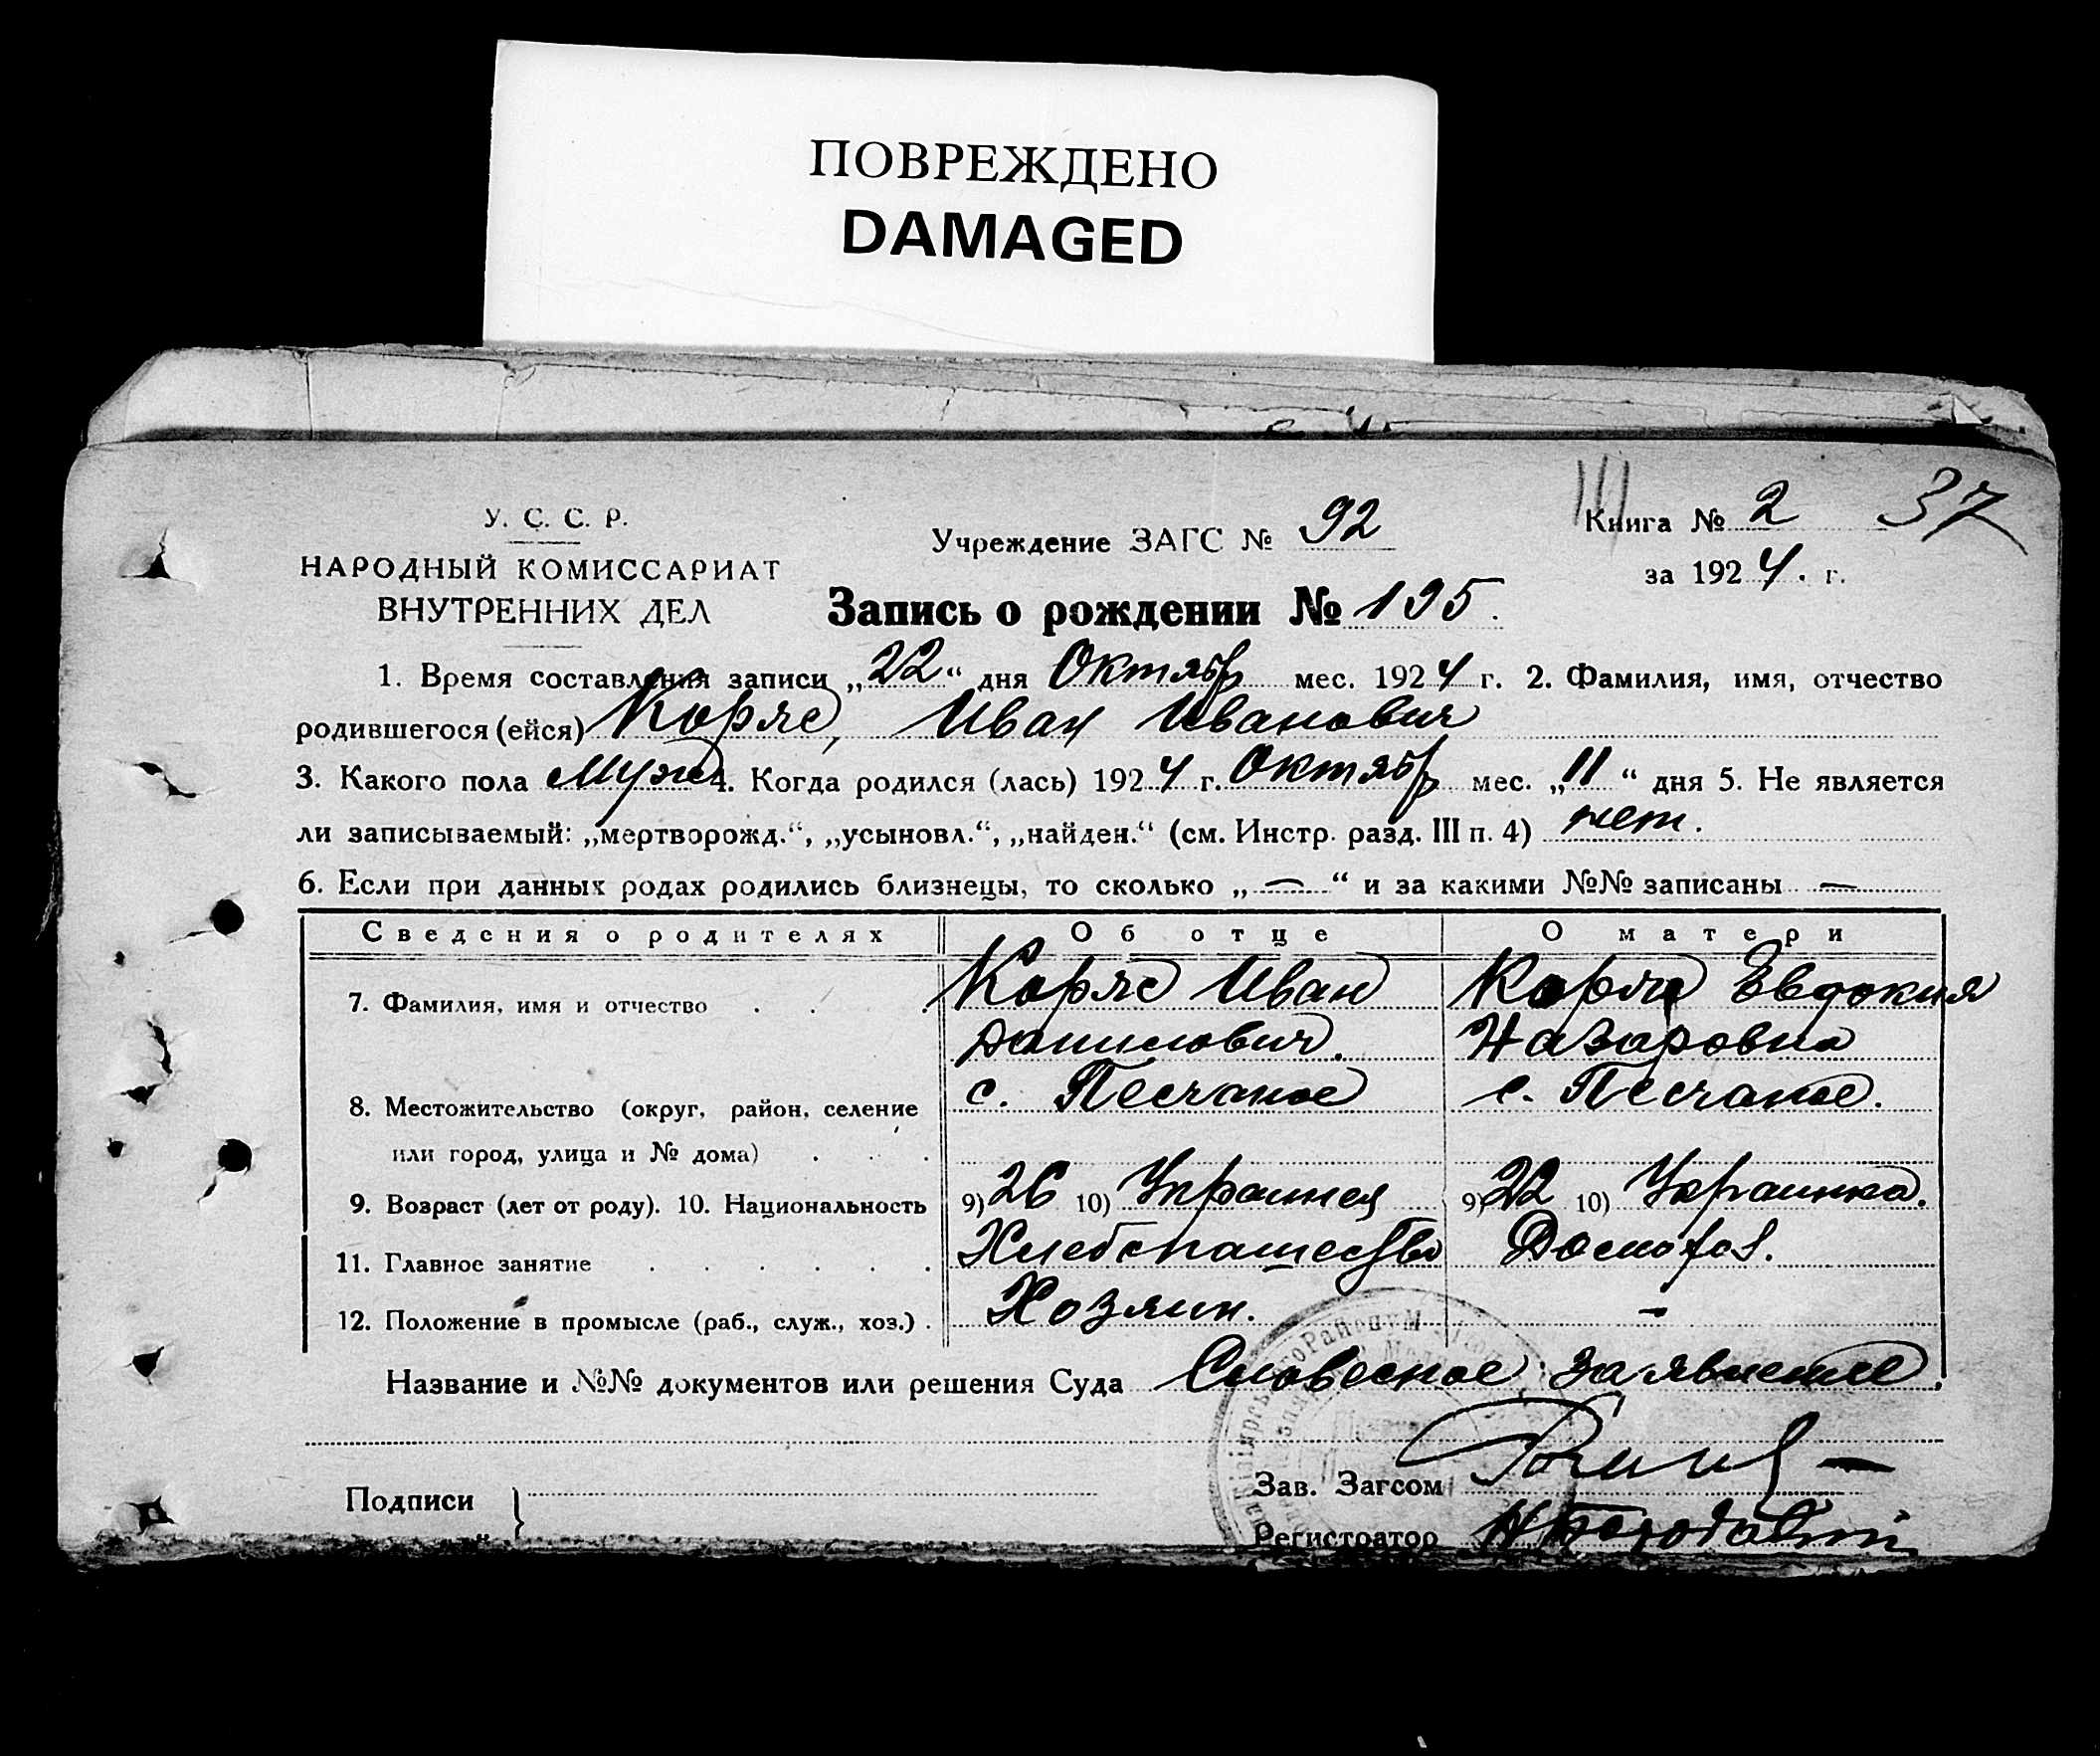 ПОВРЕЖДЕНО
DAMAGED
У. С. С. Р.
НАРОДНЫЙ КОМИССАРИАТ
ВНУТРЕННИХ ДЕЛ
Учреждение ЗАГС № 92
Книга № 2 37
за 1924. г.
Запись о рождении № 195.
1. Время составления записи „22“ дня Октябр мес. 1924 г. 2. Фамилия, имя, отчество
родившегося (ейся) Коряс, Иван Иванович
3. Какого пола Муж 4. Когда родился (лась) 1924 г. Октябр мес. „11“ дня 5. Не является
ли записываемый: „мертворожд.“, „усыновл.“, „найден.“ (см. Инстр. разд. III п. 4) нет.
6. Если при данных родах родились близнецы, то сколько „—“ и за какими №№ записаны —
Сведения о родителях Об отце О матери
7. Фамилия, имя и отчество . . . Коряс Иван Евдокия
Данилович. Назаровна
8. Местожительство (округ, район, селение с. Песчаное с. Песчаное.
или город, улица и № дома) . . .
9. Возраст (лет от роду). 10. Национальность 9) 26 10) Украинец 9) 22 10) Украинка.
11. Главное занятие . . . . . . Хлебопашество
12. Положение в промысле (раб., служ., хоз.) . Хозяин. -
Название и №№ документов или решения Суда Словесное заявление.
Зав. Загсом
Подписи
Регистратор